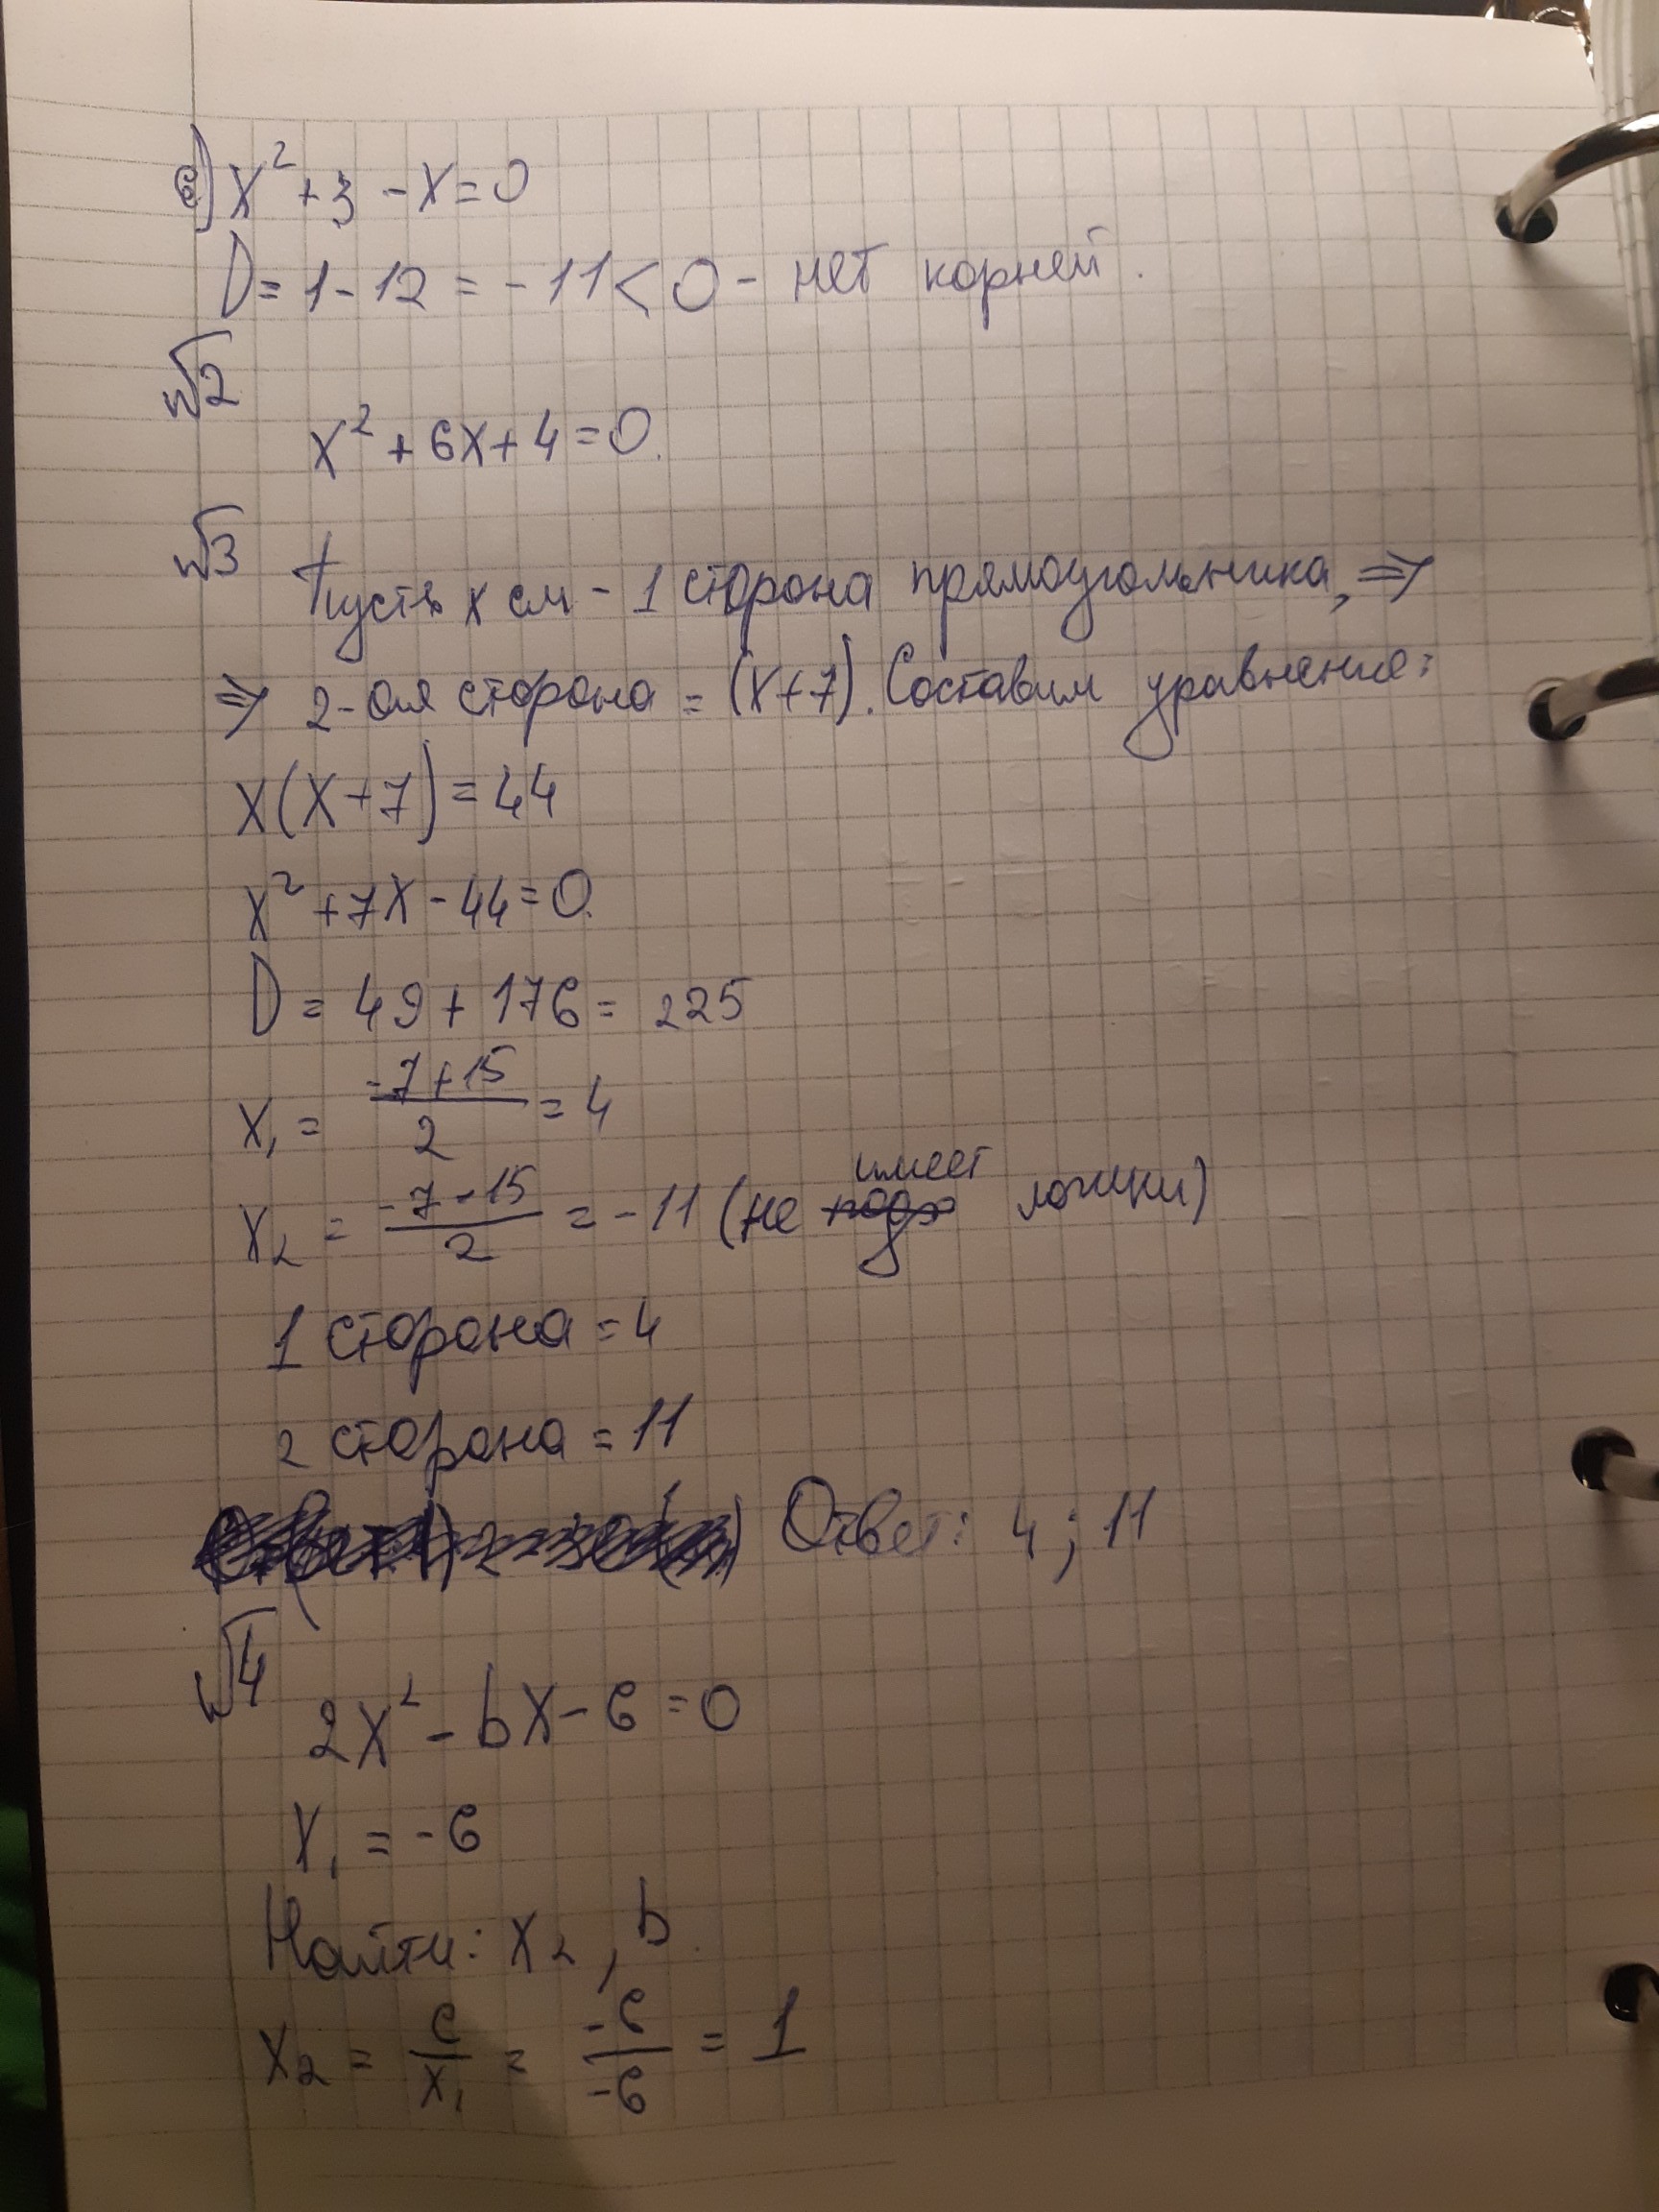 е) x² + 3 - x = 0
D = 1 - 12 = -11 < 0 - нет корней.
№2
x² + 6x + 4 = 0.
№3
Пусть x см - 1 сторона прямоугольника, ⇒
⇒ 2-ая сторона = (x+7). Составим уравнение:
x(x+7) = 44
x² + 7x - 44 = 0.
D = 49 + 176 = 225
x₁ = (-7+15)/2 = 4
x₂ = (-7-15)/2 = -11 (не имеет логики)
1 сторона = 4
2 сторона = 11
Ответ: 4; 11
№4
2x² - bx - 6 = 0
x₁ = -6
Найти: x₂, b.
x₂ = c/x₁ = -6/-6 = 1